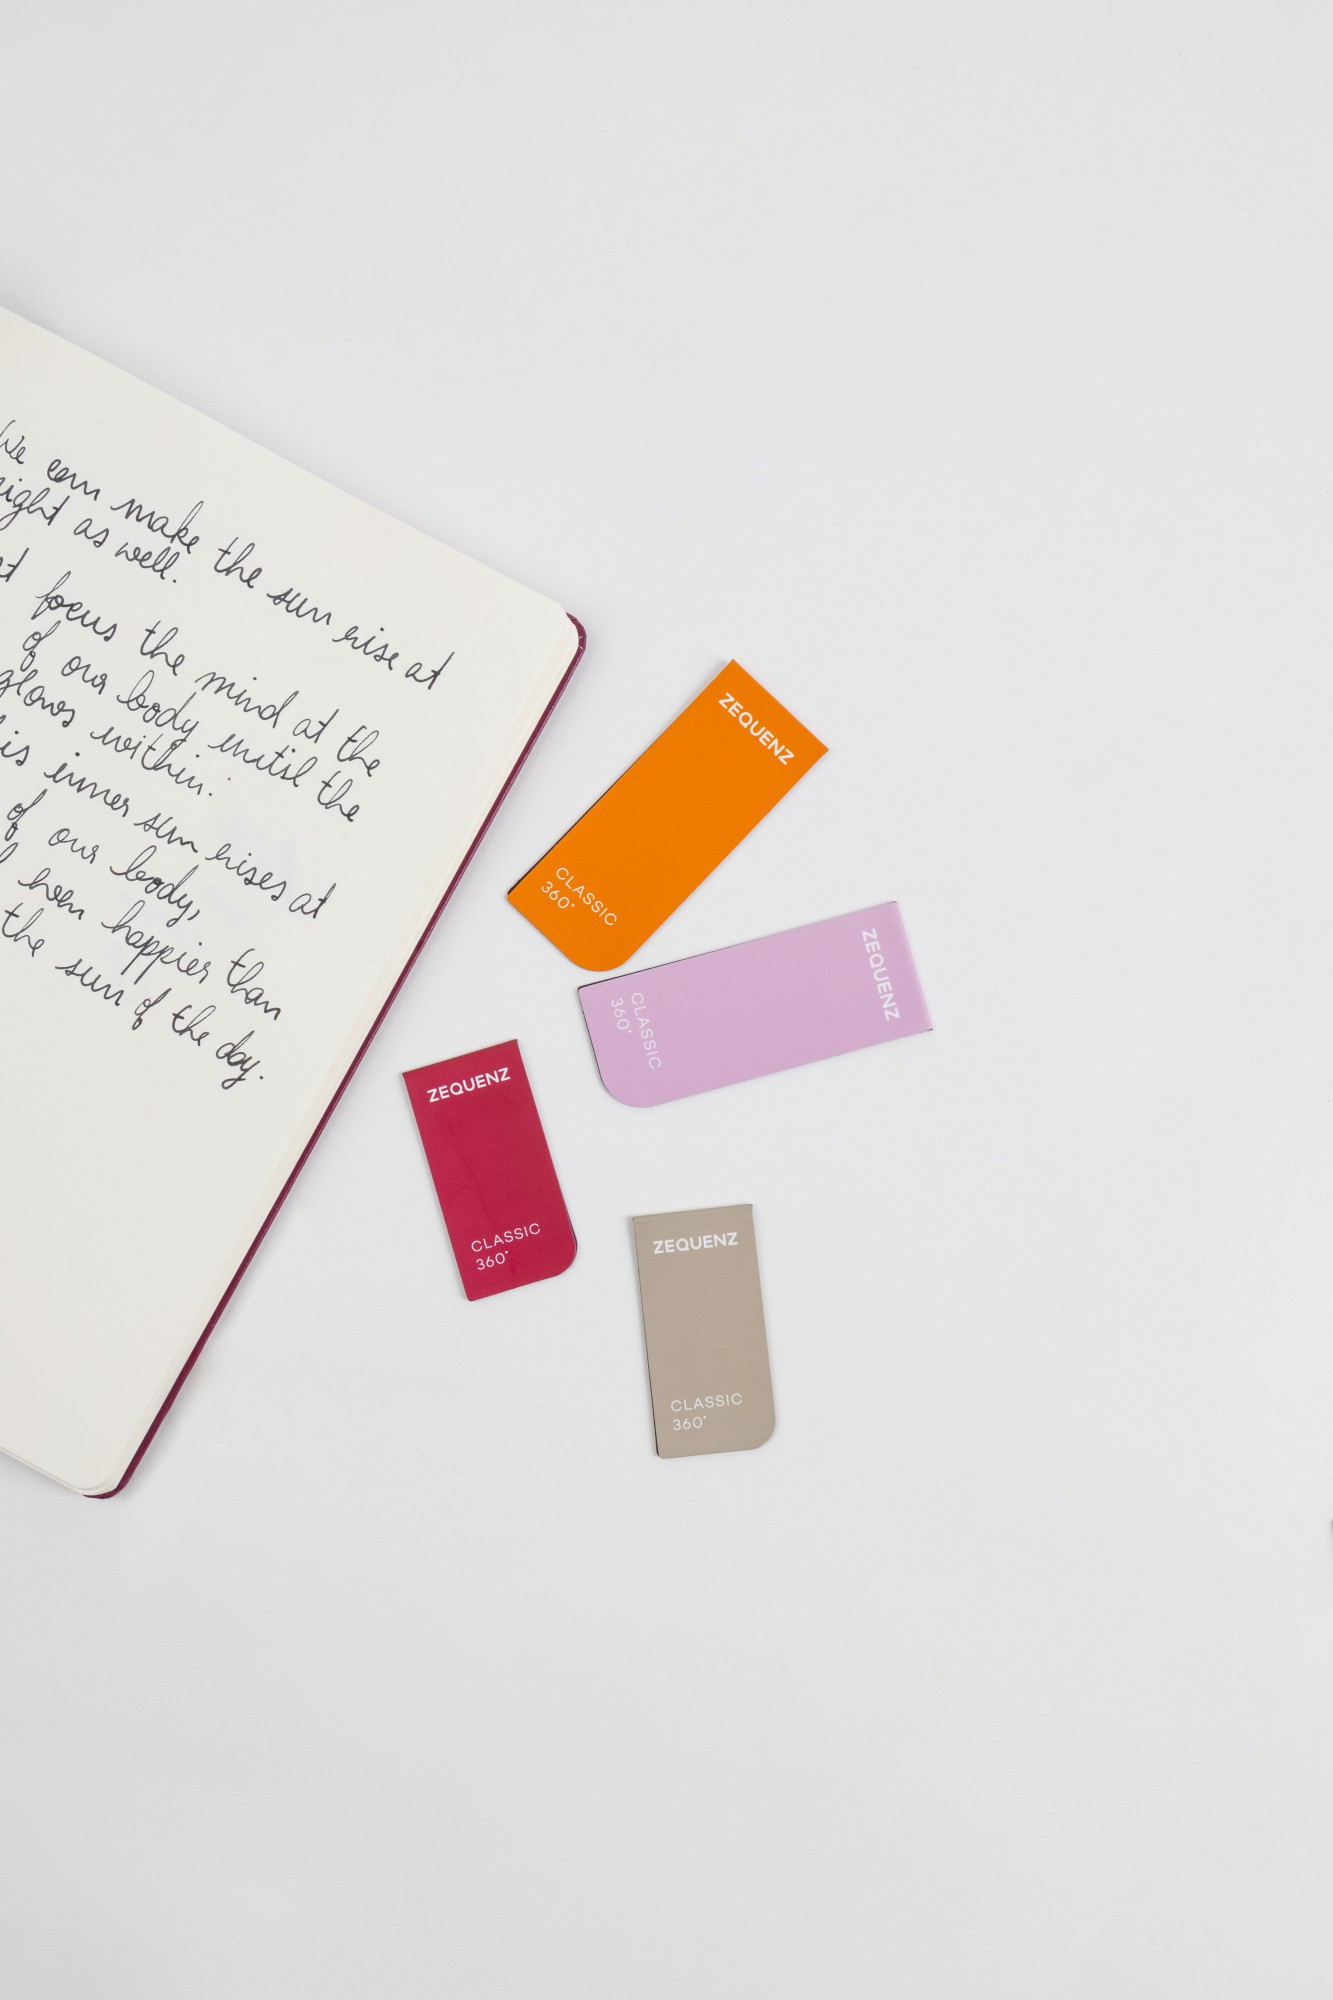 We can make the sun rise at
night as well.
focus the mind at the
of our body until the
glows within.
is inner sun rises at
of our body,
happier than
the sun of the day.
ZEQUENZ
CLASSIC
360°
ZEQUENZ
CLASSIC
360°
ZEQUENZ
CLASSIC
360°
ZEQUENZ
CLASSIC
360°